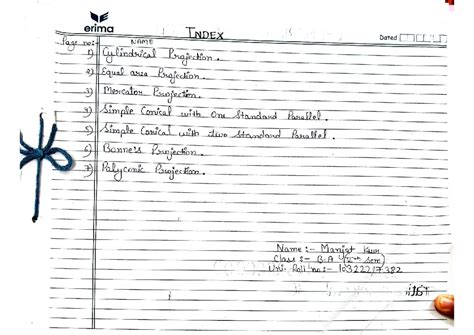 erima
INDEX
Dated
Page no:- NAME
1) Cylindrical Projection.
2) Equal area Projection.
3) Mercator Projection.
4) Simple Conical with One Standard Parallel.
5) Simple Conical with two Standard Parallel.
6) Bonne's Projection.
7) Polyconic Projection.
Name :- Manjot Kur
Class :- B.A sem)
Uni. Roll no :-